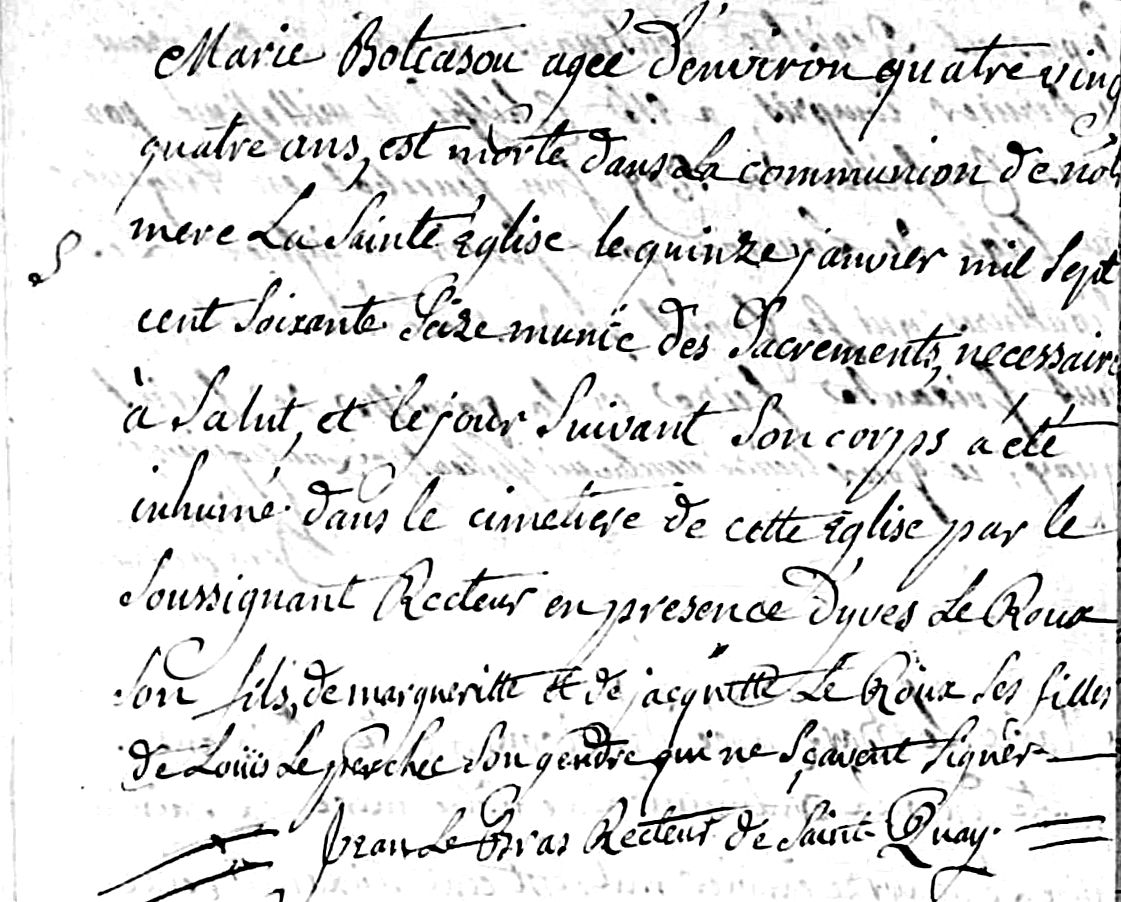 Marie Botcasou ageé d'environ quatre ving
quatre ans, est morte dans La communion de not
mere La Sainte Église le quinze janvier mil Sept
S
cent Soixante Seize munie des Sacrements, necessaire
à Salut, et le jour Suivant Son corps a été
inhumé dans le cimetiere de cette Église par le
Soussignant Recteur en presence d'yves Le Roux
Son fils, de margueritte et de jacquette Le Roux Ses filles
de Loüis Le perchec Son gendre qui ne Sçavent Signer
Jean Le Bras Recteur de Saint Quay.